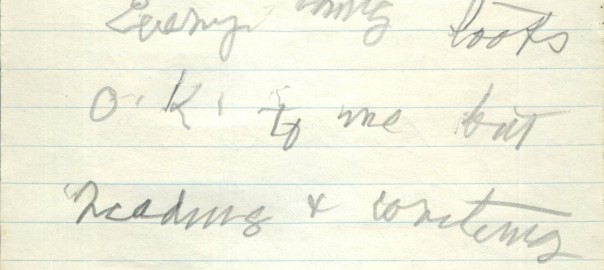 Everything looks
O.K. to me but
reading & writing